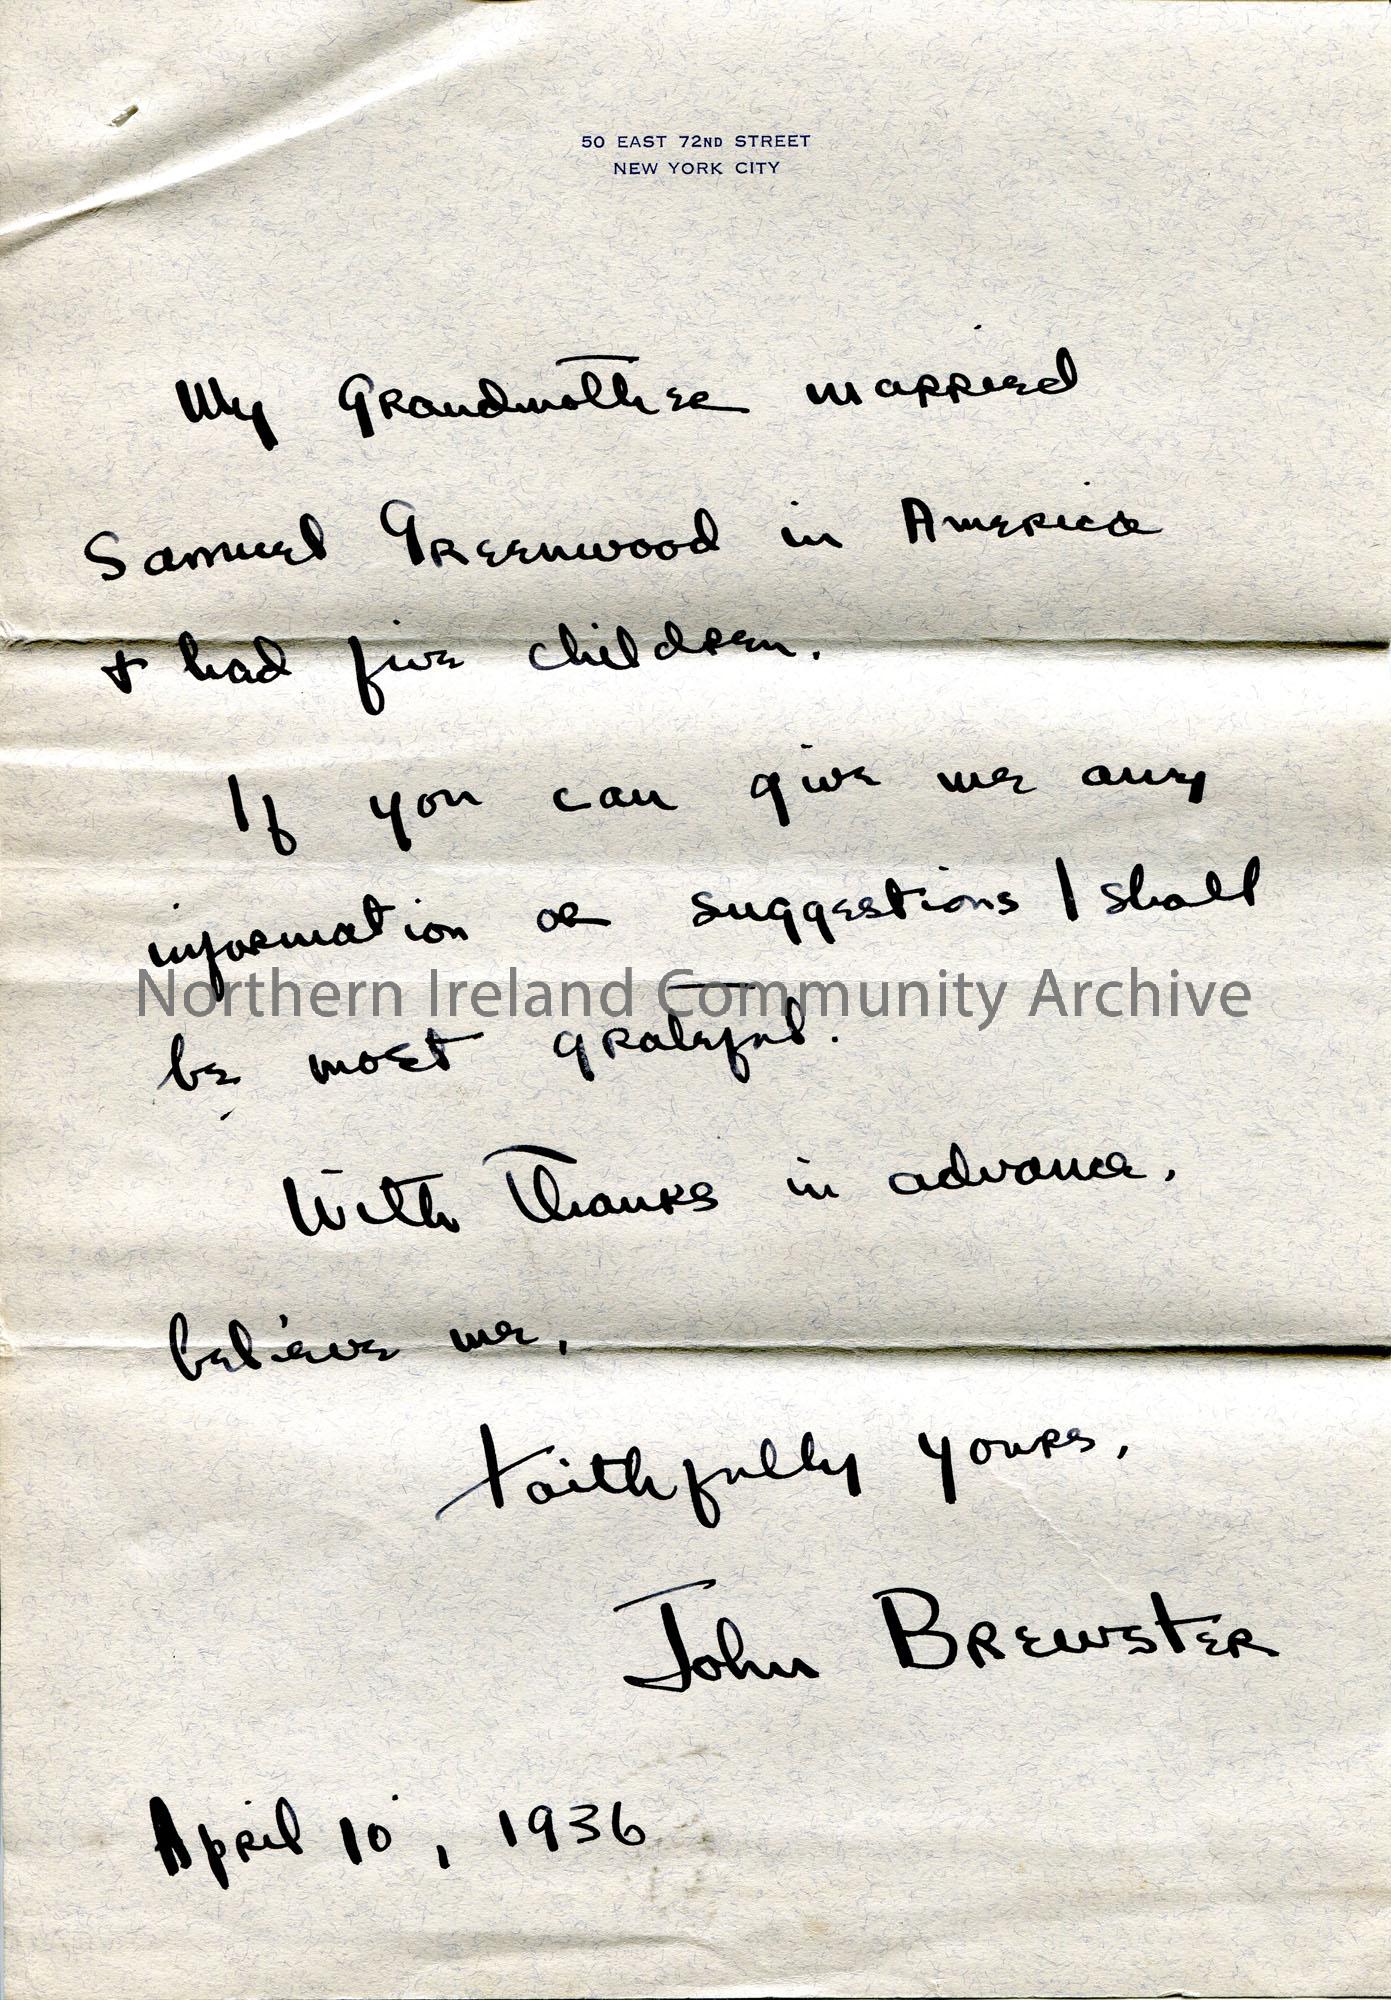 50 EAST 72ND STREET
NEW YORK CITY
My Grandmother married
Samuel Greenwood in America
+ had five children.
If you can give me any
information or suggestions I shall
Northern Ireland Community Archive
be most grateful.
With Thanks in advance,
believe me,
faithfully yours,
John Brewster
April 10, 1936